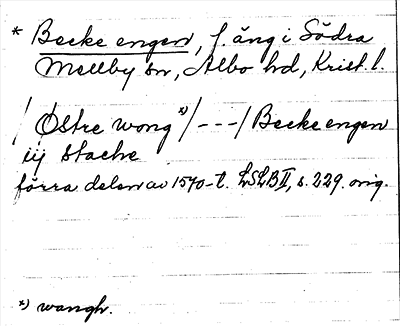 * Becke engen, f. äng i Södra
Mellby sn, Albo hd, Krist. l.
/ Østre wong *) / --- / Becke engen
iij stache
förra delen av 1570-t. LSLB II, s. 229. orig.
*) wangh.